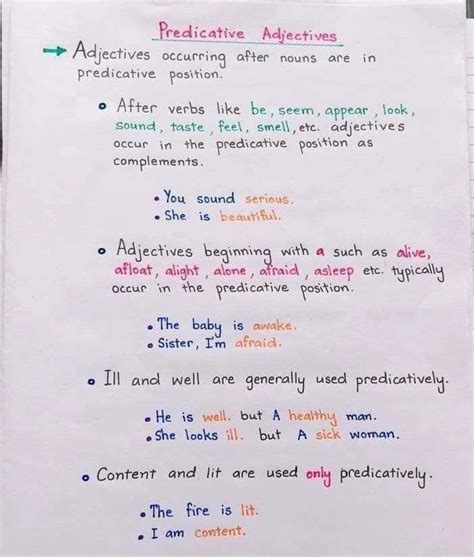 Predicative Adjectives
→ Adjectives occurring after nouns are in
predicative position.
• After verbs like be, seem, appear, look,
sound, taste, feel, smell, etc. adjectives
occur in the predicative position as
complements.
• You sound serious.
• She is beautiful.
• Adjectives beginning with a such as alive,
afloat, alight, alone, afraid, asleep etc. typically
occur in the predicative position.
• The baby is awake.
• Sister, I'm afraid.
• Ill and well are generally used predicatively.
• He is well. but A healthy man.
• She looks ill. but A sick woman.
• Content and lit are used only predicatively.
• The fire is lit.
• I am content.